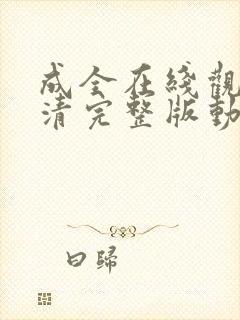 成全在綫觀
清完整版動
曰歸